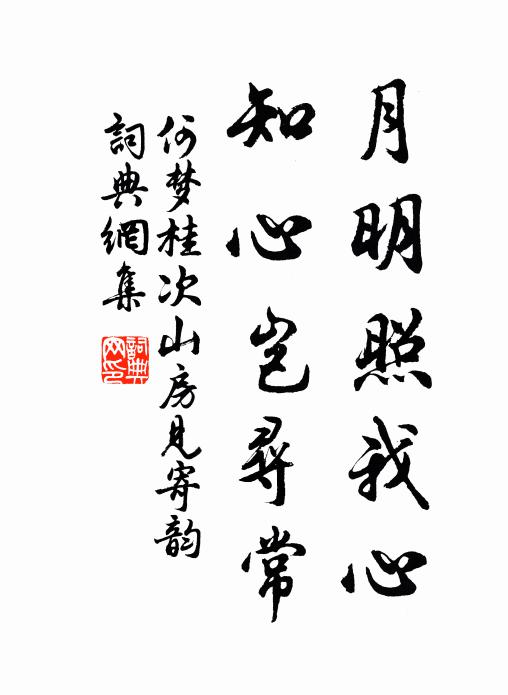 月明照我心
知心岂尋常
何梦桂次山房見寄韵
詞典網集
詞典網印